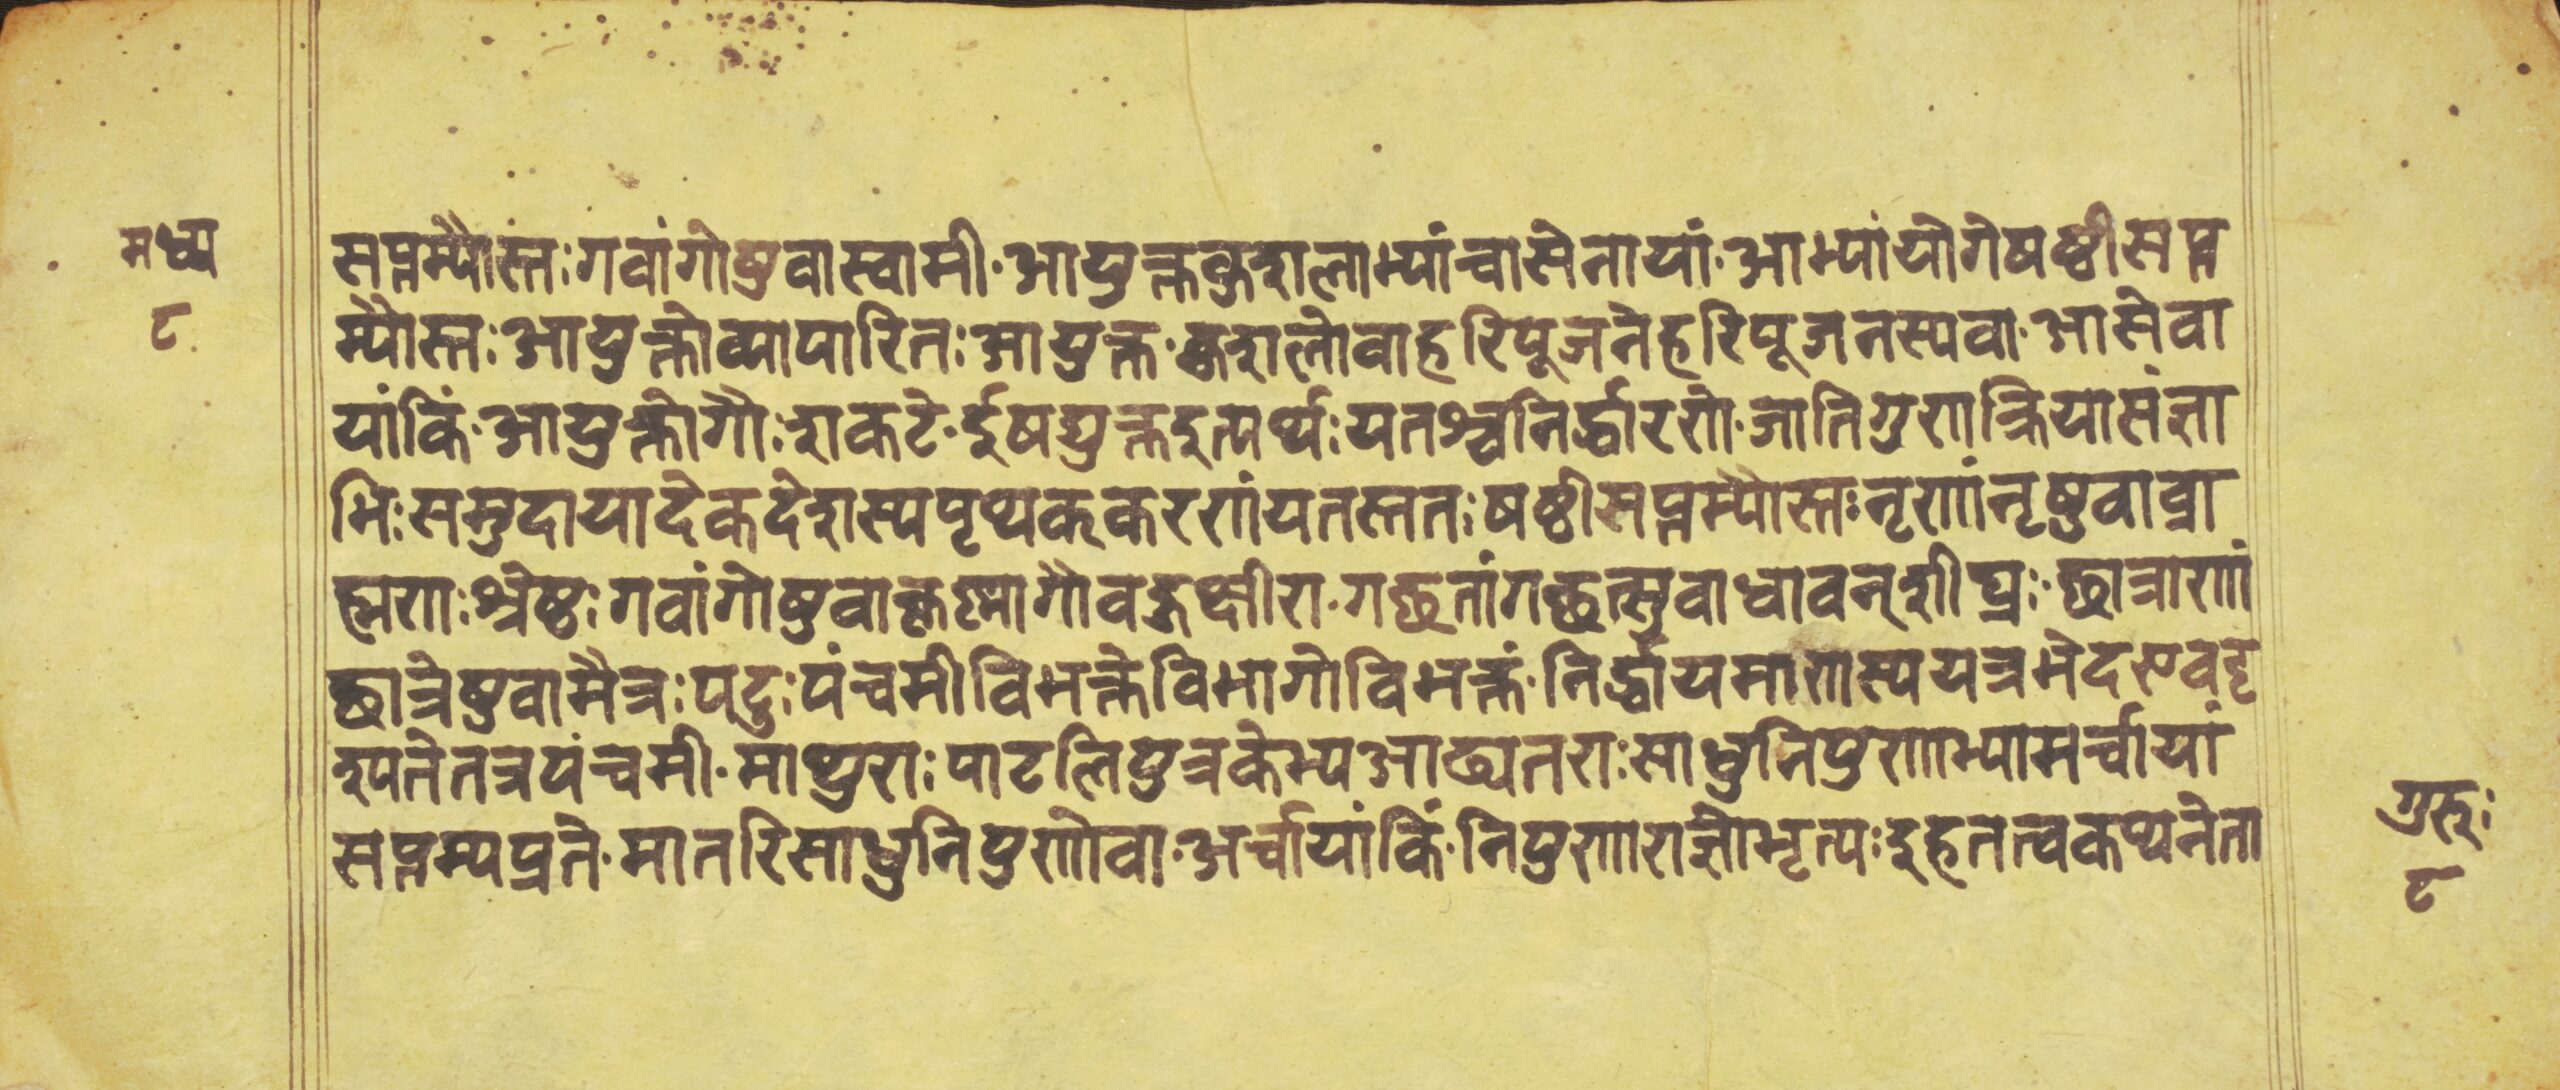 मध्य
८
सप्तम्यौस्तः गवांगोषुवास्वामी॰ आयुक्तकुशलाभ्यांचासेनायां॰ आभ्यांयोगेषष्ठीसप्त
म्यौस्तः आयुक्तोव्यापारितः आयुक्त॰ कुशलोवाहरिपूजनेहरिपूजनस्यवा॰ आसेवा
यांकिं॰ आयुक्तोगौः शकटे॰ ईषद्युक्तइत्यर्थः यतश्चनिर्द्धारणे॰ जातिगुणक्रियासंज्ञा
भिः समुदायादेकदेशस्यपृथक्करणंयतस्ततः षष्ठीसप्तम्यौस्तः नृणांनृषुवाब्रा
ह्मणः श्रेष्ठः गवांगोषुवाकृष्णागौवहुक्षीरा॰ गछतांगछत्सुवाधावन्शीघ्रः॰ छात्राणां
छात्रेषुवामैत्रः पटुः पंचमीविभक्तेविभागोविभक्तं॰ निर्द्धायमाणस्ययत्रभेदएवदृ
श्यतेतत्रपंचमी॰ माथुराः पाटलिपुत्रकेभ्यआढ्यतराः साधुनिपुणाभ्यामर्चायां
सप्तम्यप्रते॰ मातरिसाधुनिपुणोवा॰ अर्चायांकिं॰ निपुणाराज्ञोभृत्यः इहतत्वकथनेता
गुरुः
८